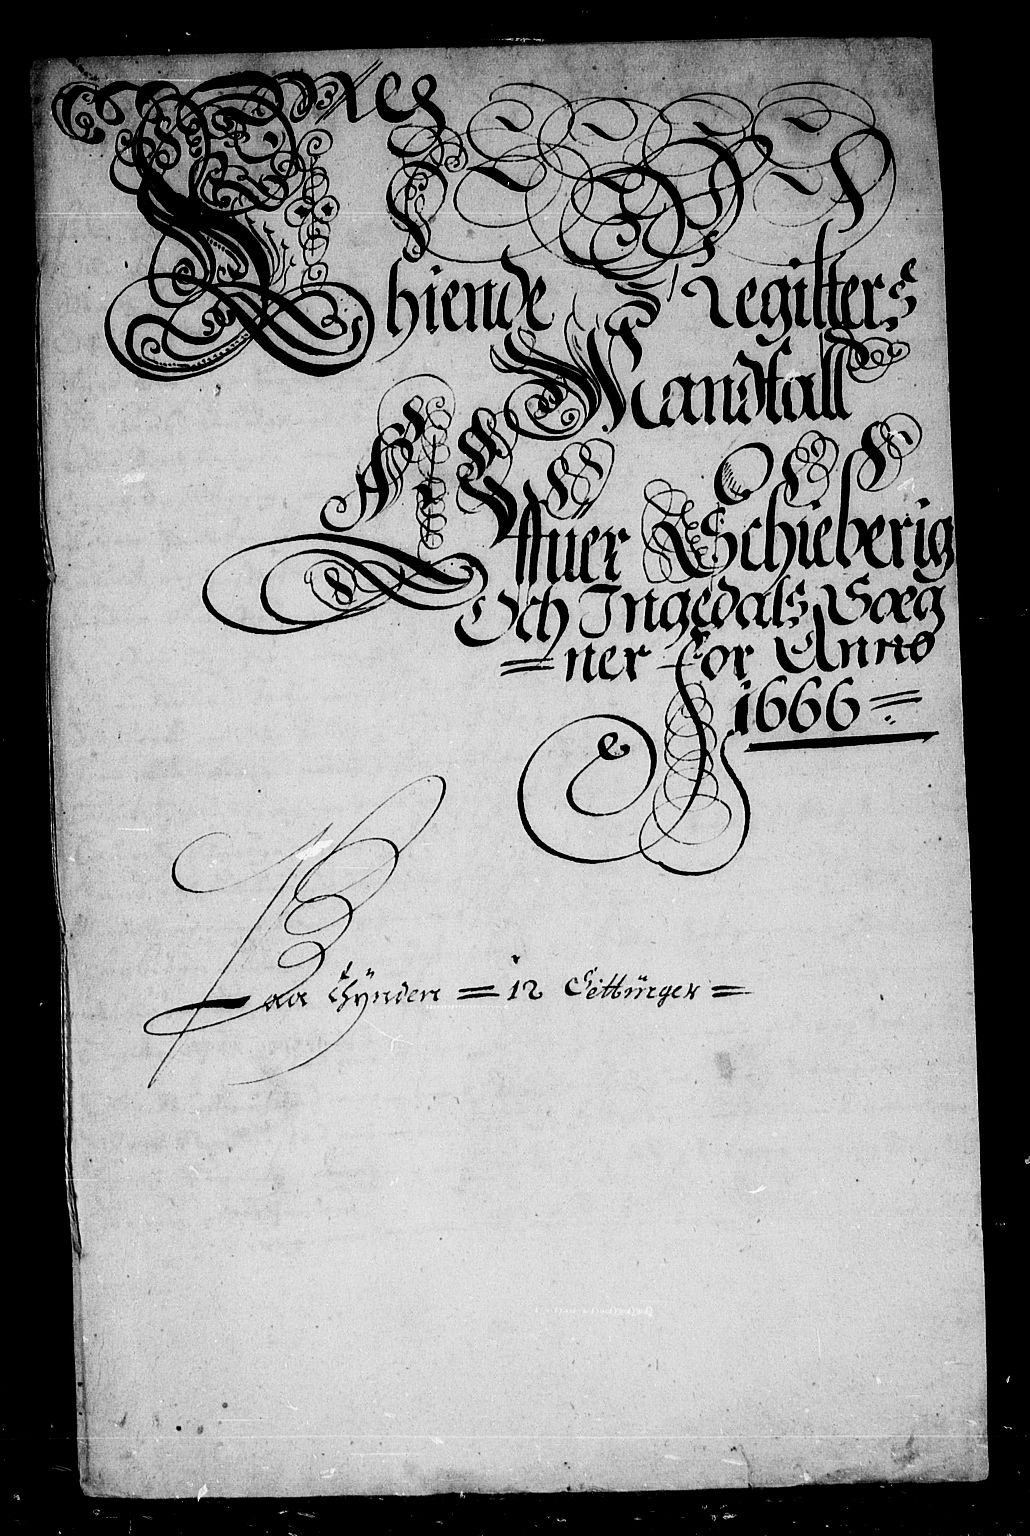 Thiende Registers
Mandtall
Offuer Schieberig
Och Ingedals Sog
= ner for Anno
1666 =
Paa Thynden = 12 Settinger =